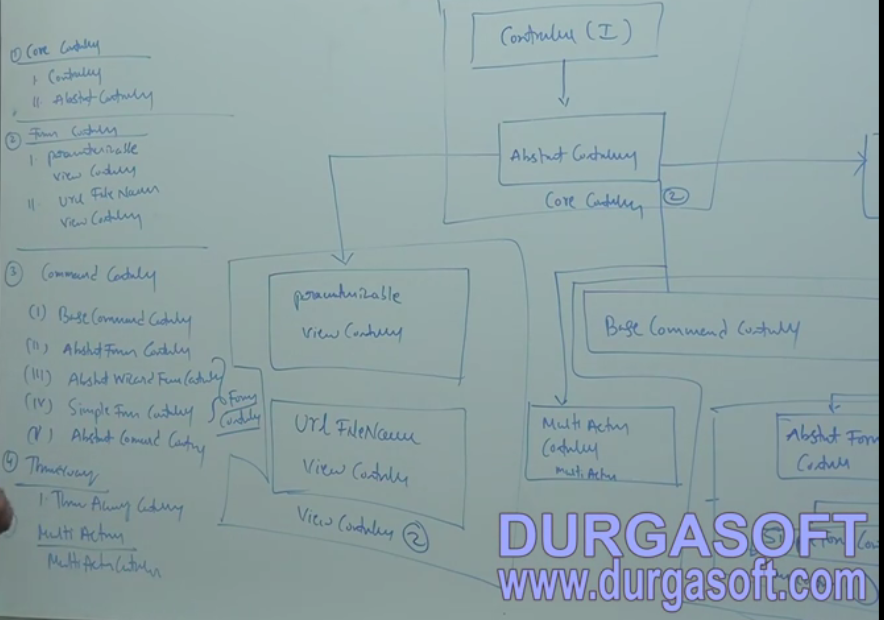 ① Core Controller
I. Controller
II. Abstract Controller
② Form Controller
I. parameterizable
view Controller
II. Url FileName
view Controller
③ Command Controller
(I) Base Command Controller
(II) Abstract Form Controller
(III) Abstract Wizard Form Controller
(IV) Simple Form Controller
(V) Abstract Command Controller
Form
Controller
④
I. Controller
Multi Action
Multi Action Controller
Controller (I)
Abstract Controller
Core Controller ②
parameterizable
view Controller
Url FileName
View Controller
View Controller ②
Multi Action
Controller
multi Action
Base Command Controller
Abstract Form
Form
DURGASOFT
www.durgasoft.com